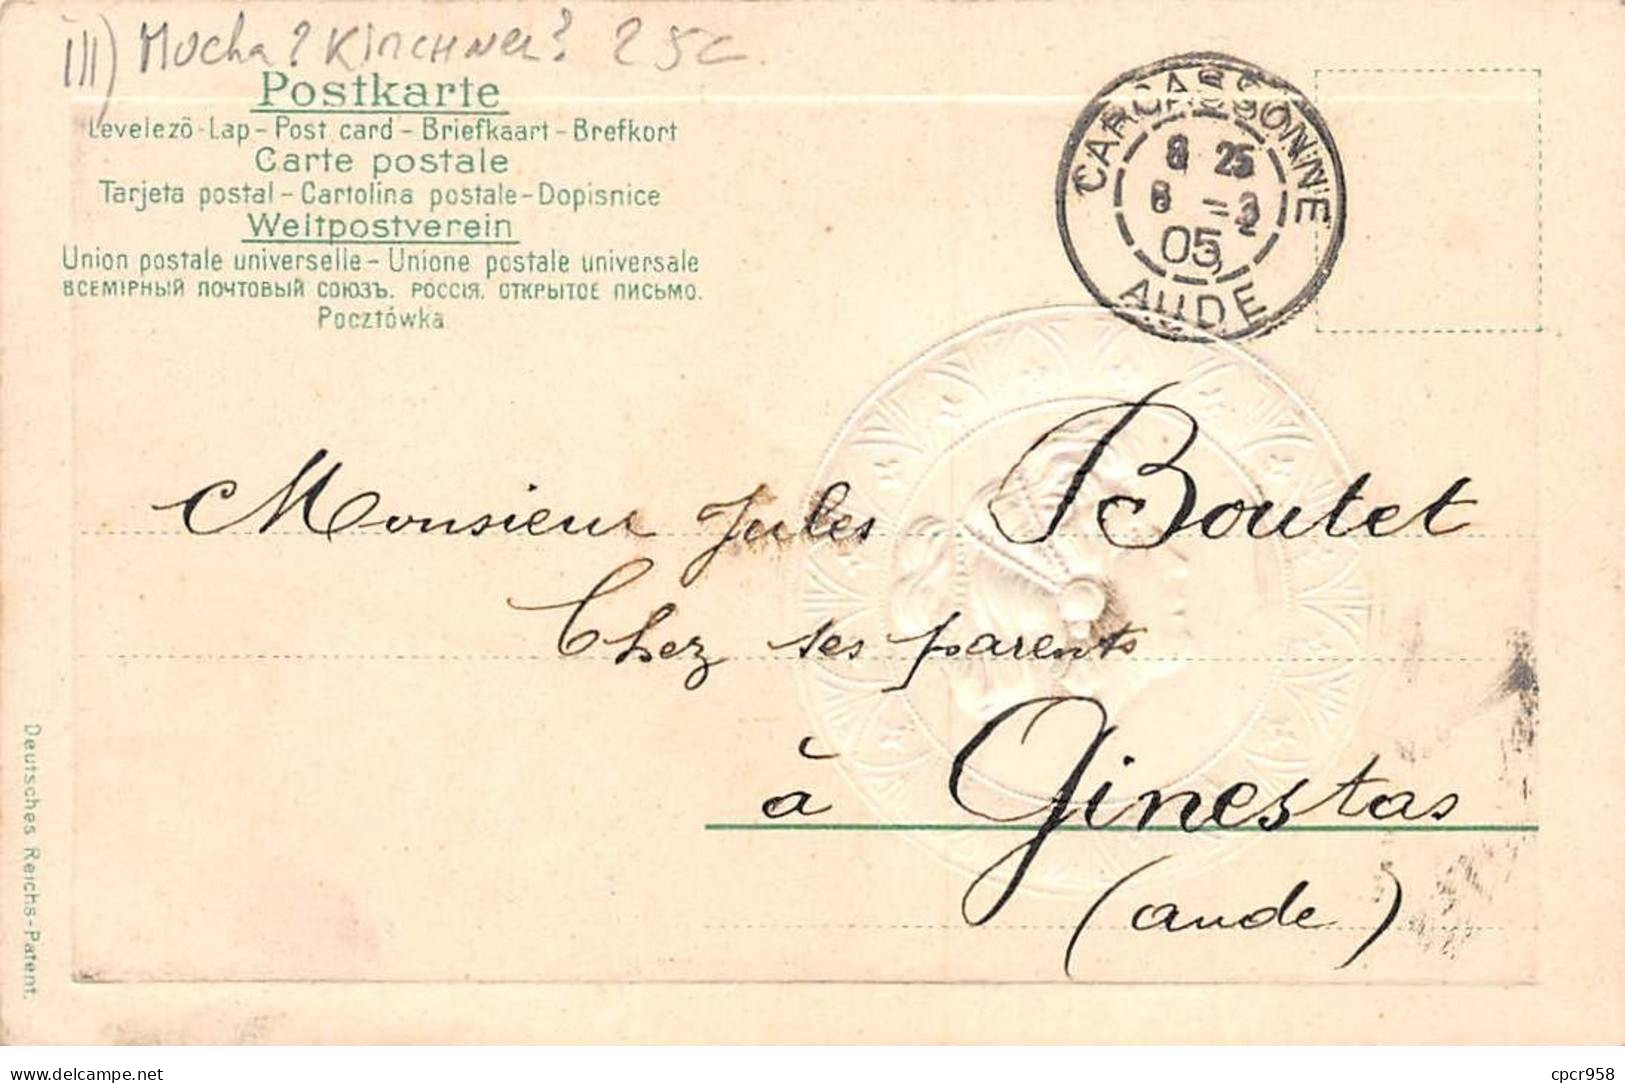 ill) Mucha? Kirchner? 25c
Postkarte
Levelező-Lap - Post card - Briefkaart - Brefkort
Carte postale
Tarjeta postal - Cartolina postale - Dopisnice
Weltpostverein
Union postale universelle - Unione postale universale
ВСЕМІРНЫЙ ПОЧТОВЫЙ СОЮЗЪ. РОССІЯ. ОТКРЫТОЕ ПИСЬМО.
Pocztówka
CARCASSONNE
8 25
8 - 3
05
AUDE
Monsieur Jules Boutet
Chez ses parents
à Ginestas
(aude)
Deutsches Reichs-Patent.
delcampe.net
cpcr958